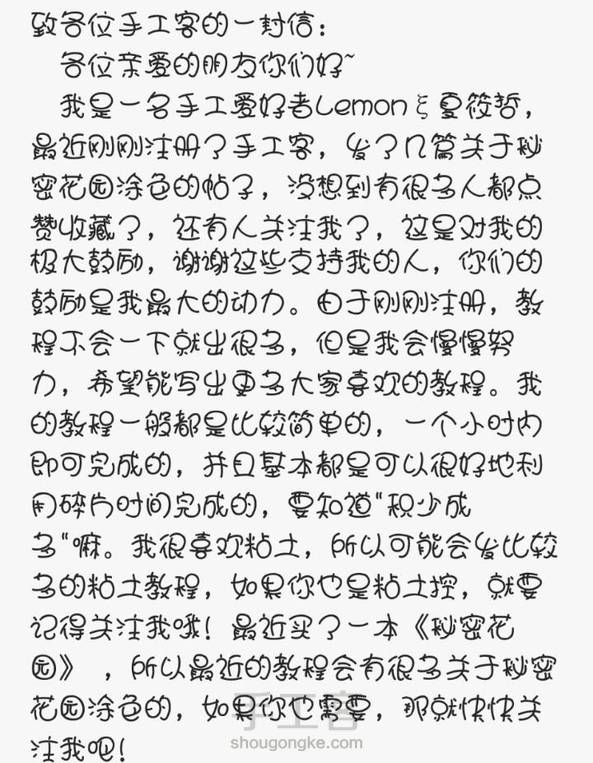 致各位手工客的一封信：
各位亲爱的朋友你们好~
我是一名手工爱好者Lemonξ夏筱哲，
最近刚刚注册了手工客，发了几篇关于秘
密花园涂色的帖子，没想到有很多人都点
赞收藏了，还有人关注我了，这是对我的
极大鼓励，谢谢这些支持我的人，你们的
鼓励是我最大的动力。由于刚刚注册，教
程不会一下就出很多，但是我会慢慢努
力，希望能写出更多大家喜欢的教程。我
的教程一般都是比较简单的，一个小时内
即可完成的，并且基本都是可以很好地利
用碎片时间完成的，要知道“积少成
多“嘛。我很喜欢粘土，所以可能会发比较
多的粘土教程，如果你也是粘土控，就要
记得关注我哦！最近买了一本《秘密花
园》，所以最近的教程会有很多关于秘密
花园涂色的，如果你也需要，那就快快关
注我吧！
手工客
shougongke.com